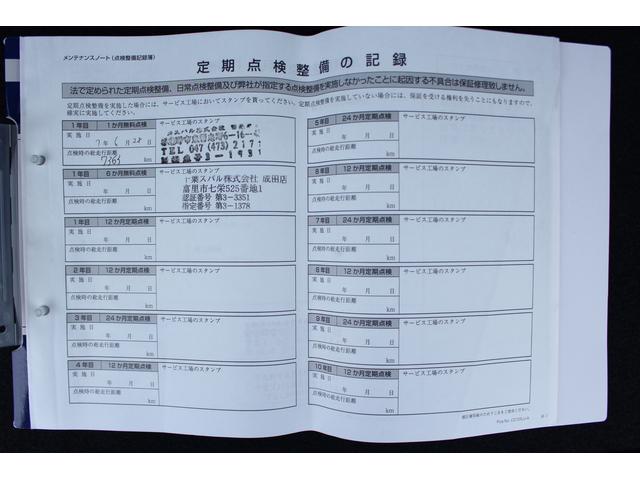 メンテナンスノート(点検整備記録簿)
定期点検整備の記録
法で定められた定期点検整備、日常点検整備及び弊社が指定する点検整備を実施しなかったことに起因する不具合は保証修理致しません。
定期点検整備を実施した場合には、サービス工場においてスタンプを貰ってください。定期点検整備を実施していない場合には、保証を受ける権利を失うこともありますので、
確実に実施してください。
1年目 1か月無料点検
実施日
7年6月22日
点検時の総走行距離
7363 km
TEL 047 (473) 217
1年目 6か月無料点検 サービス工場のスタンプ
実施日
年 月 日
点検時の総走行距離
km
千葉スバル株式会社 成田店
富里市七栄525番地1
認証番号 第3-3351
指定番号 第3-1378
1年目 12か月定期点検 サービス工場のスタンプ
実施日
年 月 日
点検時の総走行距離
km
2年目 12か月定期点検 サービス工場のスタンプ
実施日
年 月 日
点検時の総走行距離
km
3年目 24か月定期点検 サービス工場のスタンプ
実施日
年 月 日
点検時の総走行距離
km
4年目 12か月定期点検 サービス工場のスタンプ
実施日
年 月 日
点検時の総走行距離
km
5年目 24か月定期点検 サービス工場のスタンプ
実施日
年 月 日
点検時の総走行距離
km
6年目 12か月定期点検 サービス工場のスタンプ
実施日
年 月 日
点検時の総走行距離
km
7年目 24か月定期点検 サービス工場のスタンプ
実施日
年 月 日
点検時の総走行距離
km
8年目 12か月定期点検 サービス工場のスタンプ
実施日
年 月 日
点検時の総走行距離
km
9年目 24か月定期点検 サービス工場のスタンプ
実施日
年 月 日
点検時の総走行距離
km
10年目 12か月定期点検 サービス工場のスタンプ
実施日
年 月 日
点検時の総走行距離
km